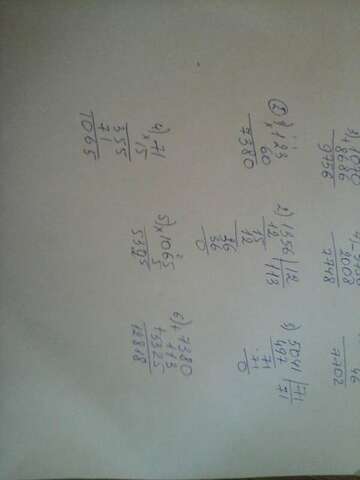 3) + 1070
8686
9756
2008
7748
46
7702
② 1) 123
× 60
7380
2) 1356 | 12
12 | 113
15
12
36
36
0
3) 5041 | 71
497 | 71
71
71
0
4) 71
× 15
355
71
1065
5) × 1065
5
6) + 7380
113
+ 5325
12818